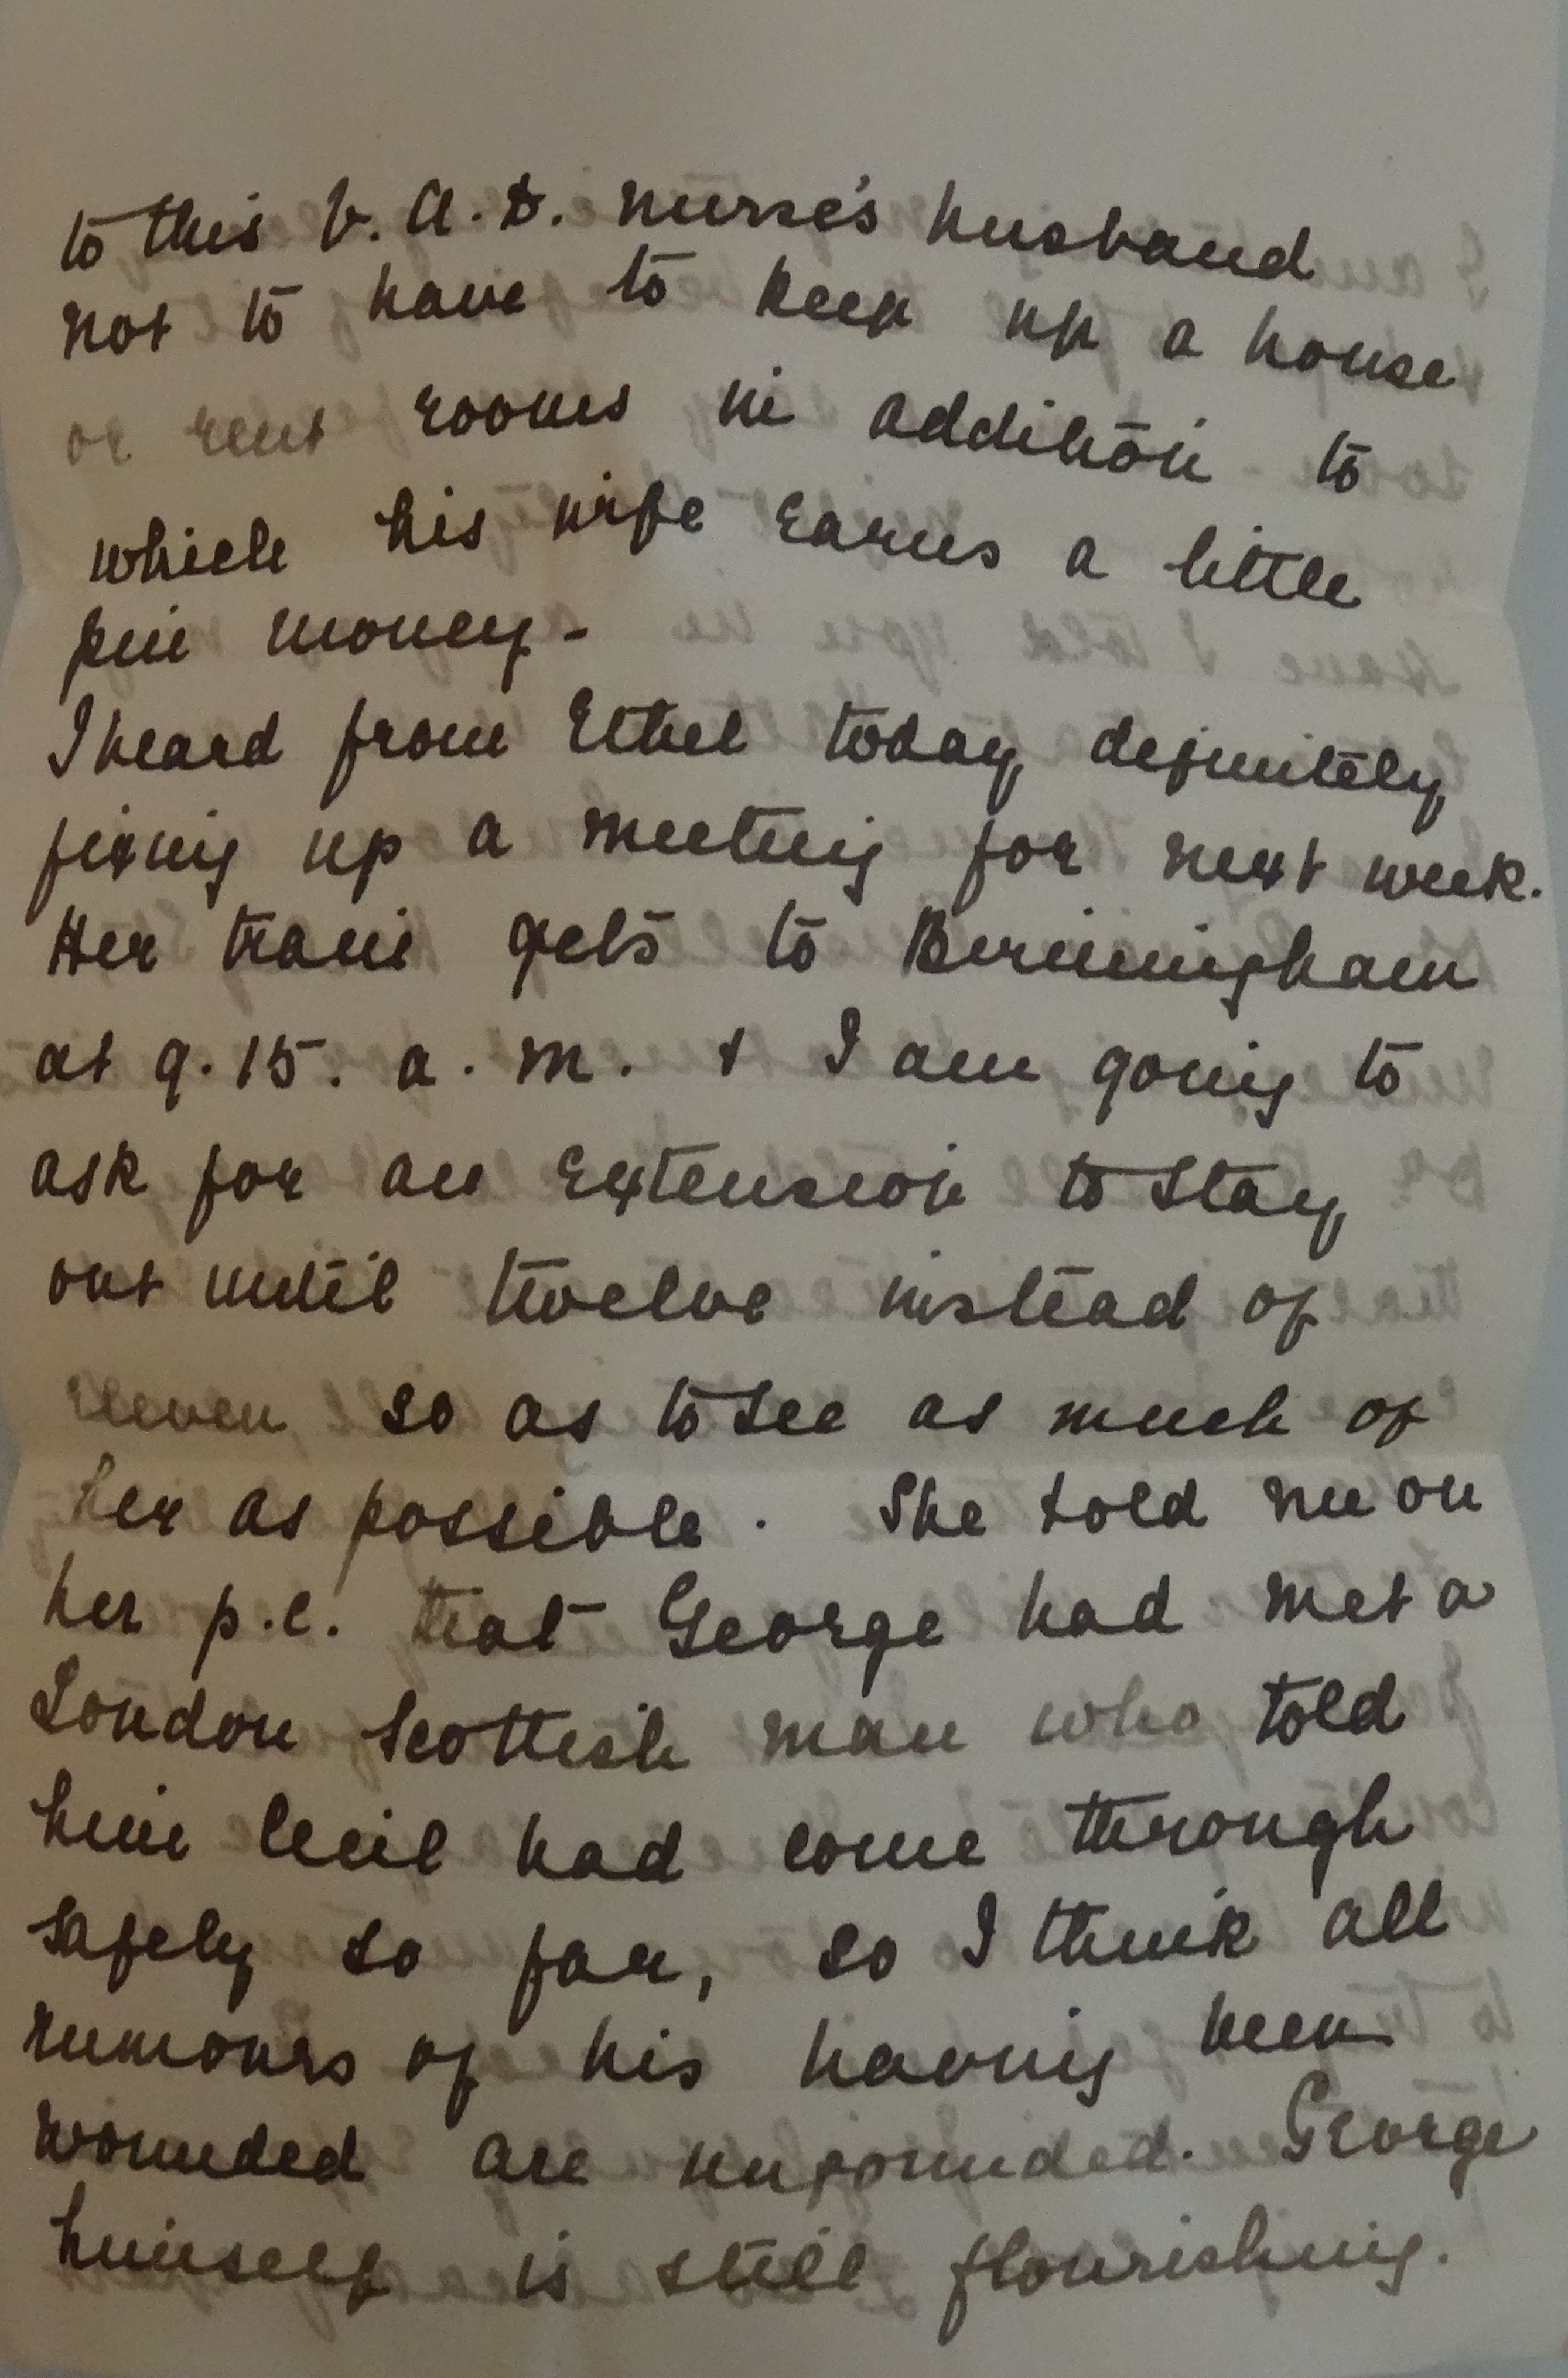 to this V.A.D. nurse's husband
not to have to keep up a house
or rent rooms in addition to
which his wife earns a little
pin money -
I heard from Ethel today definitely
fixing up a meeting for next week.
Her train gets to Birmingham
at 9.15. a.m. & I am going to
ask for an extension to stay
out until twelve instead of
eleven, so as to see as much of
her as possible. She told me on
her p.c. that George had met a
London Scottish man who told
him Cecil had come through
safely so far, so I think all
rumours of his having been
wounded are unfounded. George
himself is still flourishing.